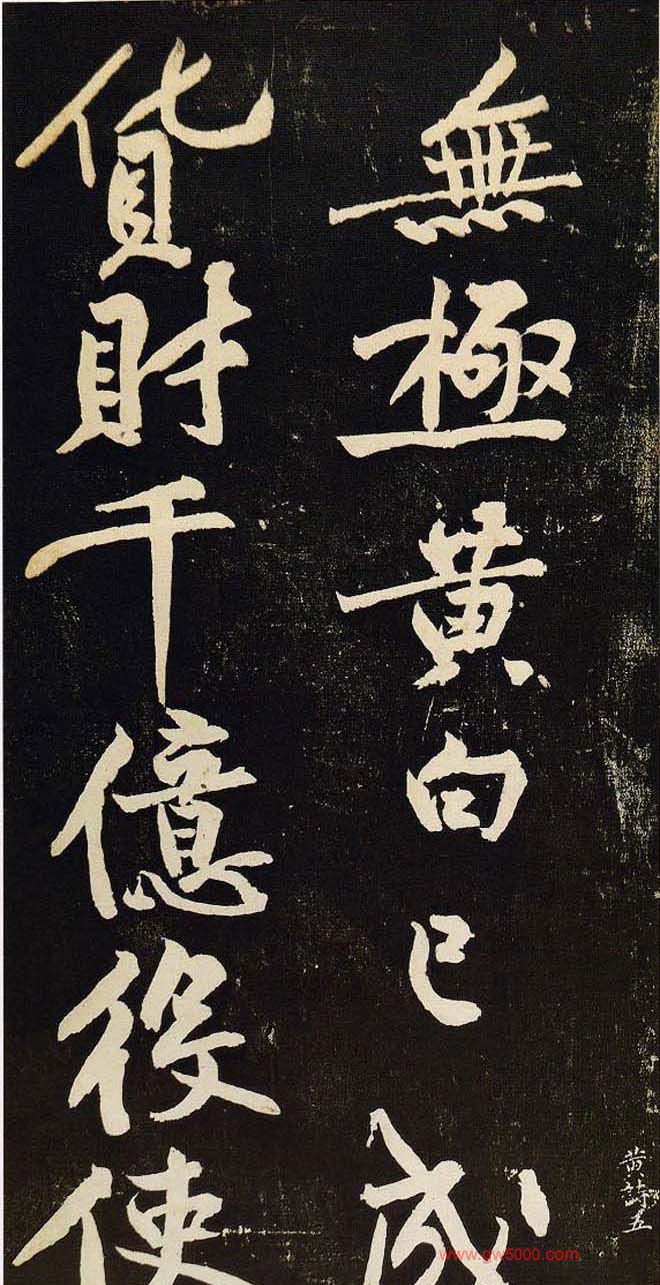 無極黄白已成
貨財千億役使
黄詩五
www.gw5000.com